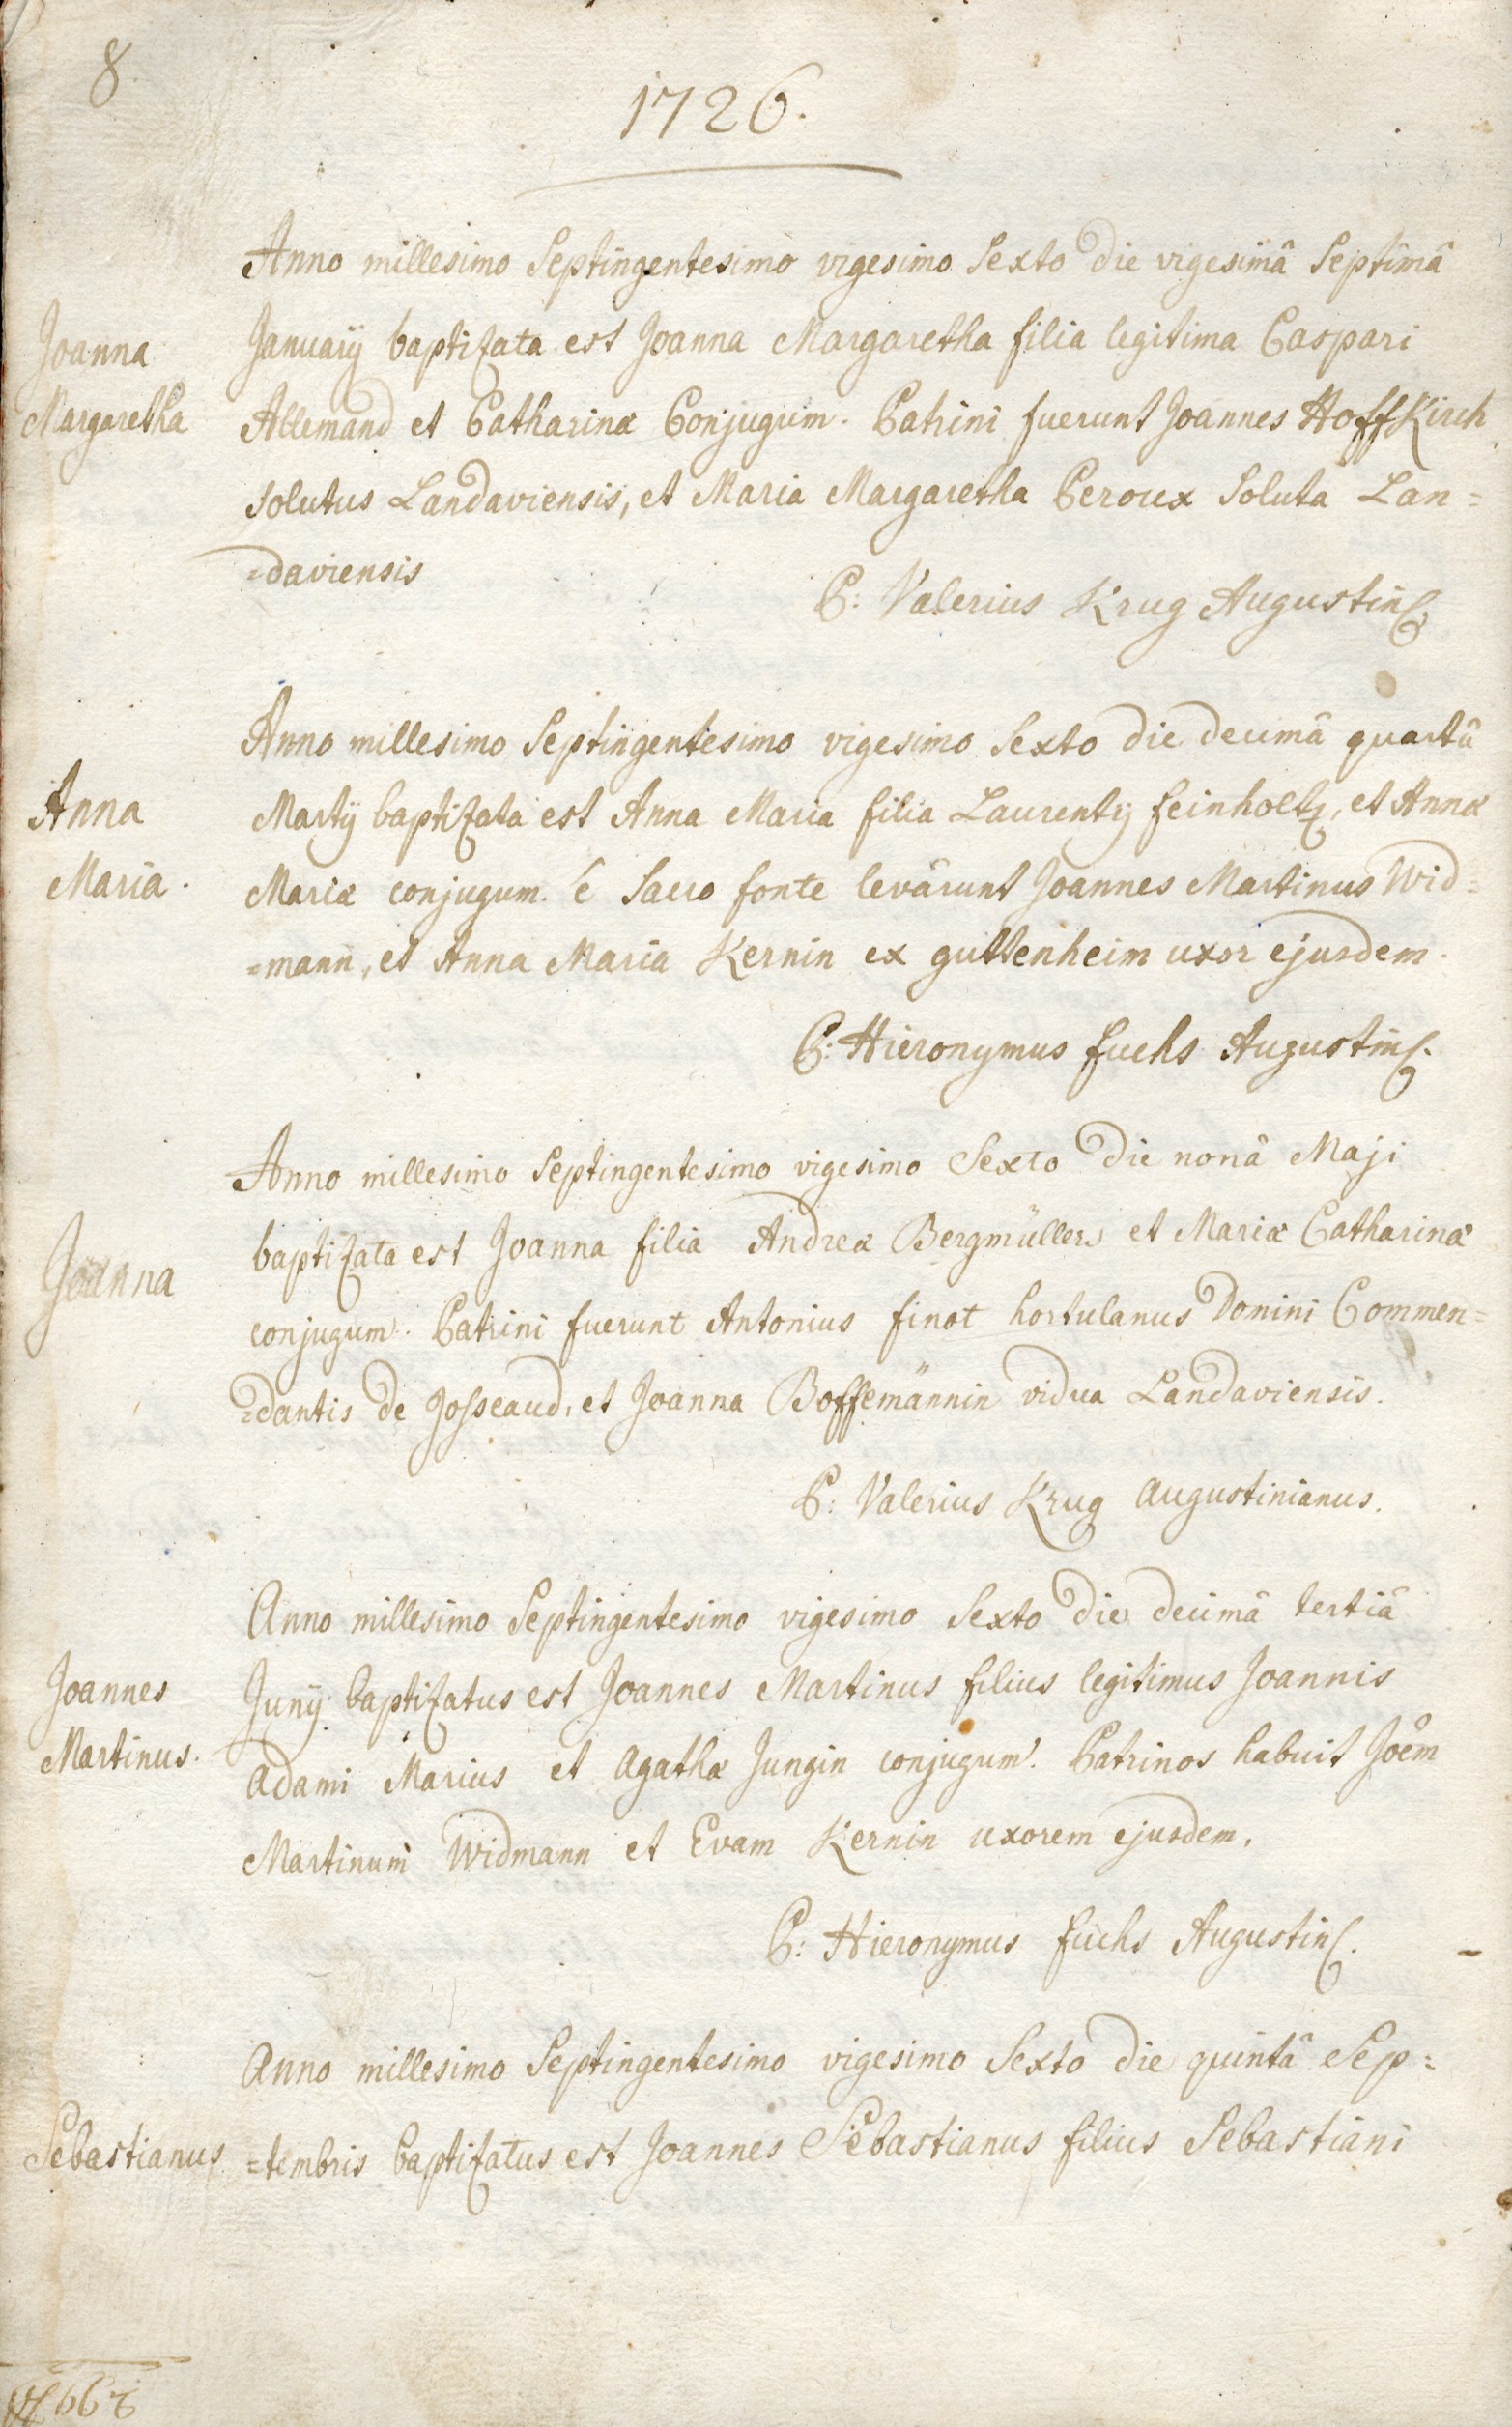 8
1726.
Anno millesimo Septingentesimo vigesimo Sexto die vigesimâ Septimâ
Joanna
Margaretha
Januarij baptizata est Joanna Margaretha filia legitima Caspari
Allemand et Catharinæ Conjugum. Patrini fuerunt Joannes HoffKirch
solutus Landaviensis, et Maria Margaretha Peroux Soluta Lan=
=daviensis
P: Valerius Krug Augustin
Anna
Maria.
Anno millesimo Septingentesimo vigesimo Sexto die decimâ quartâ
Martij baptizata est Anna Maria filia Laurentij feinholtz, et Annæ
Mariæ conjugum. é Sacro fonte levârunt Joannes Martinus Wid=
=mann, et Anna Maria Kernin ex guttenheim uxor ejusdem.
P: Hieronymus fuchs Augustin.
Joanna
Anno millesimo Septingentesimo vigesimo Sexto die nonâ Maji
baptizata est Joanna filia Andreæ Bergmüller et Mariæ Catharinæ
conjugum. Patrini fuerunt Antonius finot hortulanus Domini Commen=
=dantis de Josseaud, et Joanna Boffemännin vidua Landaviensis.
P: Valerius Krug Augustinianus.
Joannes
Martinus.
Anno millesimo Septingentesimo vigesimo Sexto die decimâ tertiâ
Junij baptizatus est Joannes Martinus filius legitimus Joannis
Adami Marius et Agathæ Jungin conjugum. Patrinos habuit Joem
Martinum Widmann et Evam Kernin uxorem ejusdem.
P: Hieronymus fuchs Augustin.
Sebastianus
Anno millesimo Septingentesimo vigesimo Sexto die quintâ Sep=
=tembris baptizatus est Joannes Sebastianus filius Sebastiani